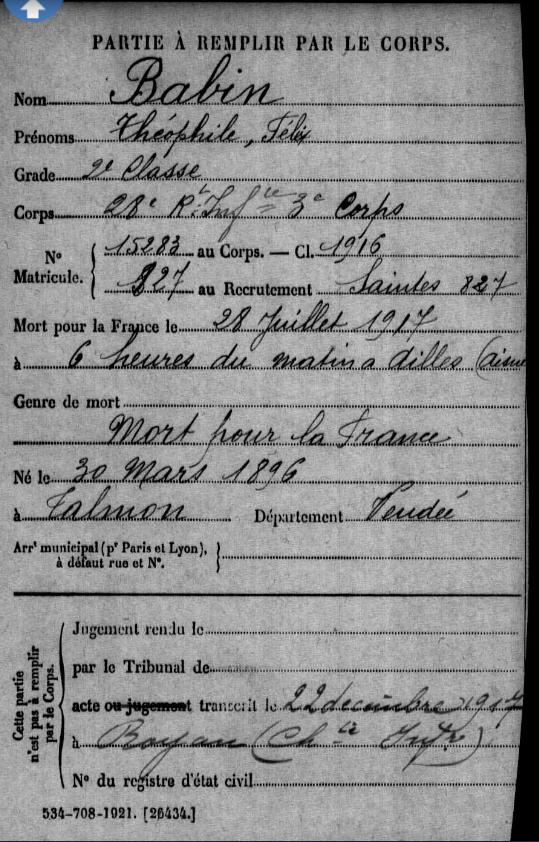 PARTIE À REMPLIR PAR LE CORPS.
Nom Babin
Prénoms Théophile, Félix
Grade 2e Classe
Corps 28e Rt Infie 3e Corps
Nº Matricule. { 15283 au Corps. — Cl. 1916
827 au Recrutement Saintes 827
Mort pour la France le 28 Juillet 1917
à 6 heures du matin a dilles (aisne
Genre de mort
Mort pour la France
Né le 30 Mars 1896
à Talmon Département Vendée
Arrt municipal (pr Paris et Lyon),
à défaut rue et Nº.
Cette partie
n'est pas à remplir
par le Corps.
Jugement rendu le
par le Tribunal de
acte ou jugement transcrit le 22 decembre 1917
à Royan (Chte Infre)
Nº du registre d'état civil
534-708-1921. [26434.]